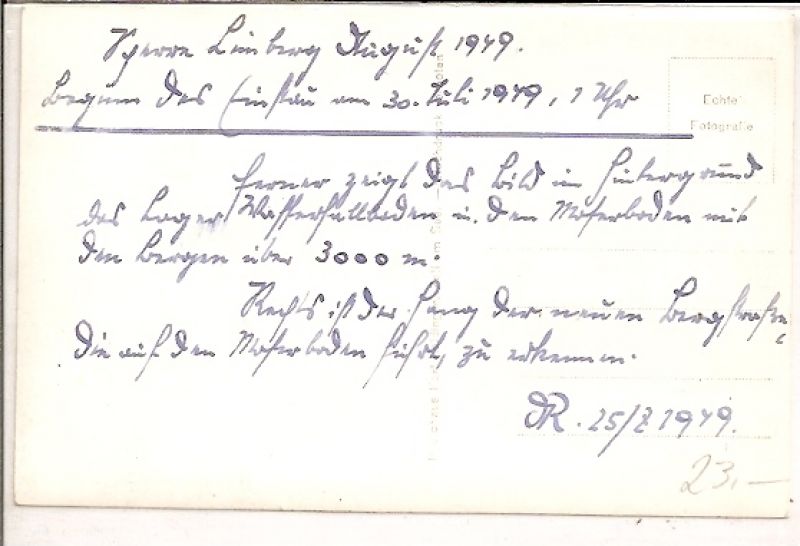 Sperre Limberg August 1949.
Beginn des Einstau am 30. Juli 1949, 1 Uhr
Echte
Fotografie
Ferner zeigt das Bild im Hintergrund
das Lager Wasserfallboden u. den Moserboden mit
den Bergen über 3000 m.
Rechts ist der Hang der neuen Bergstraße,
die auf den Moserboden führt, zu erkennen.
25/ 1949.
23,—